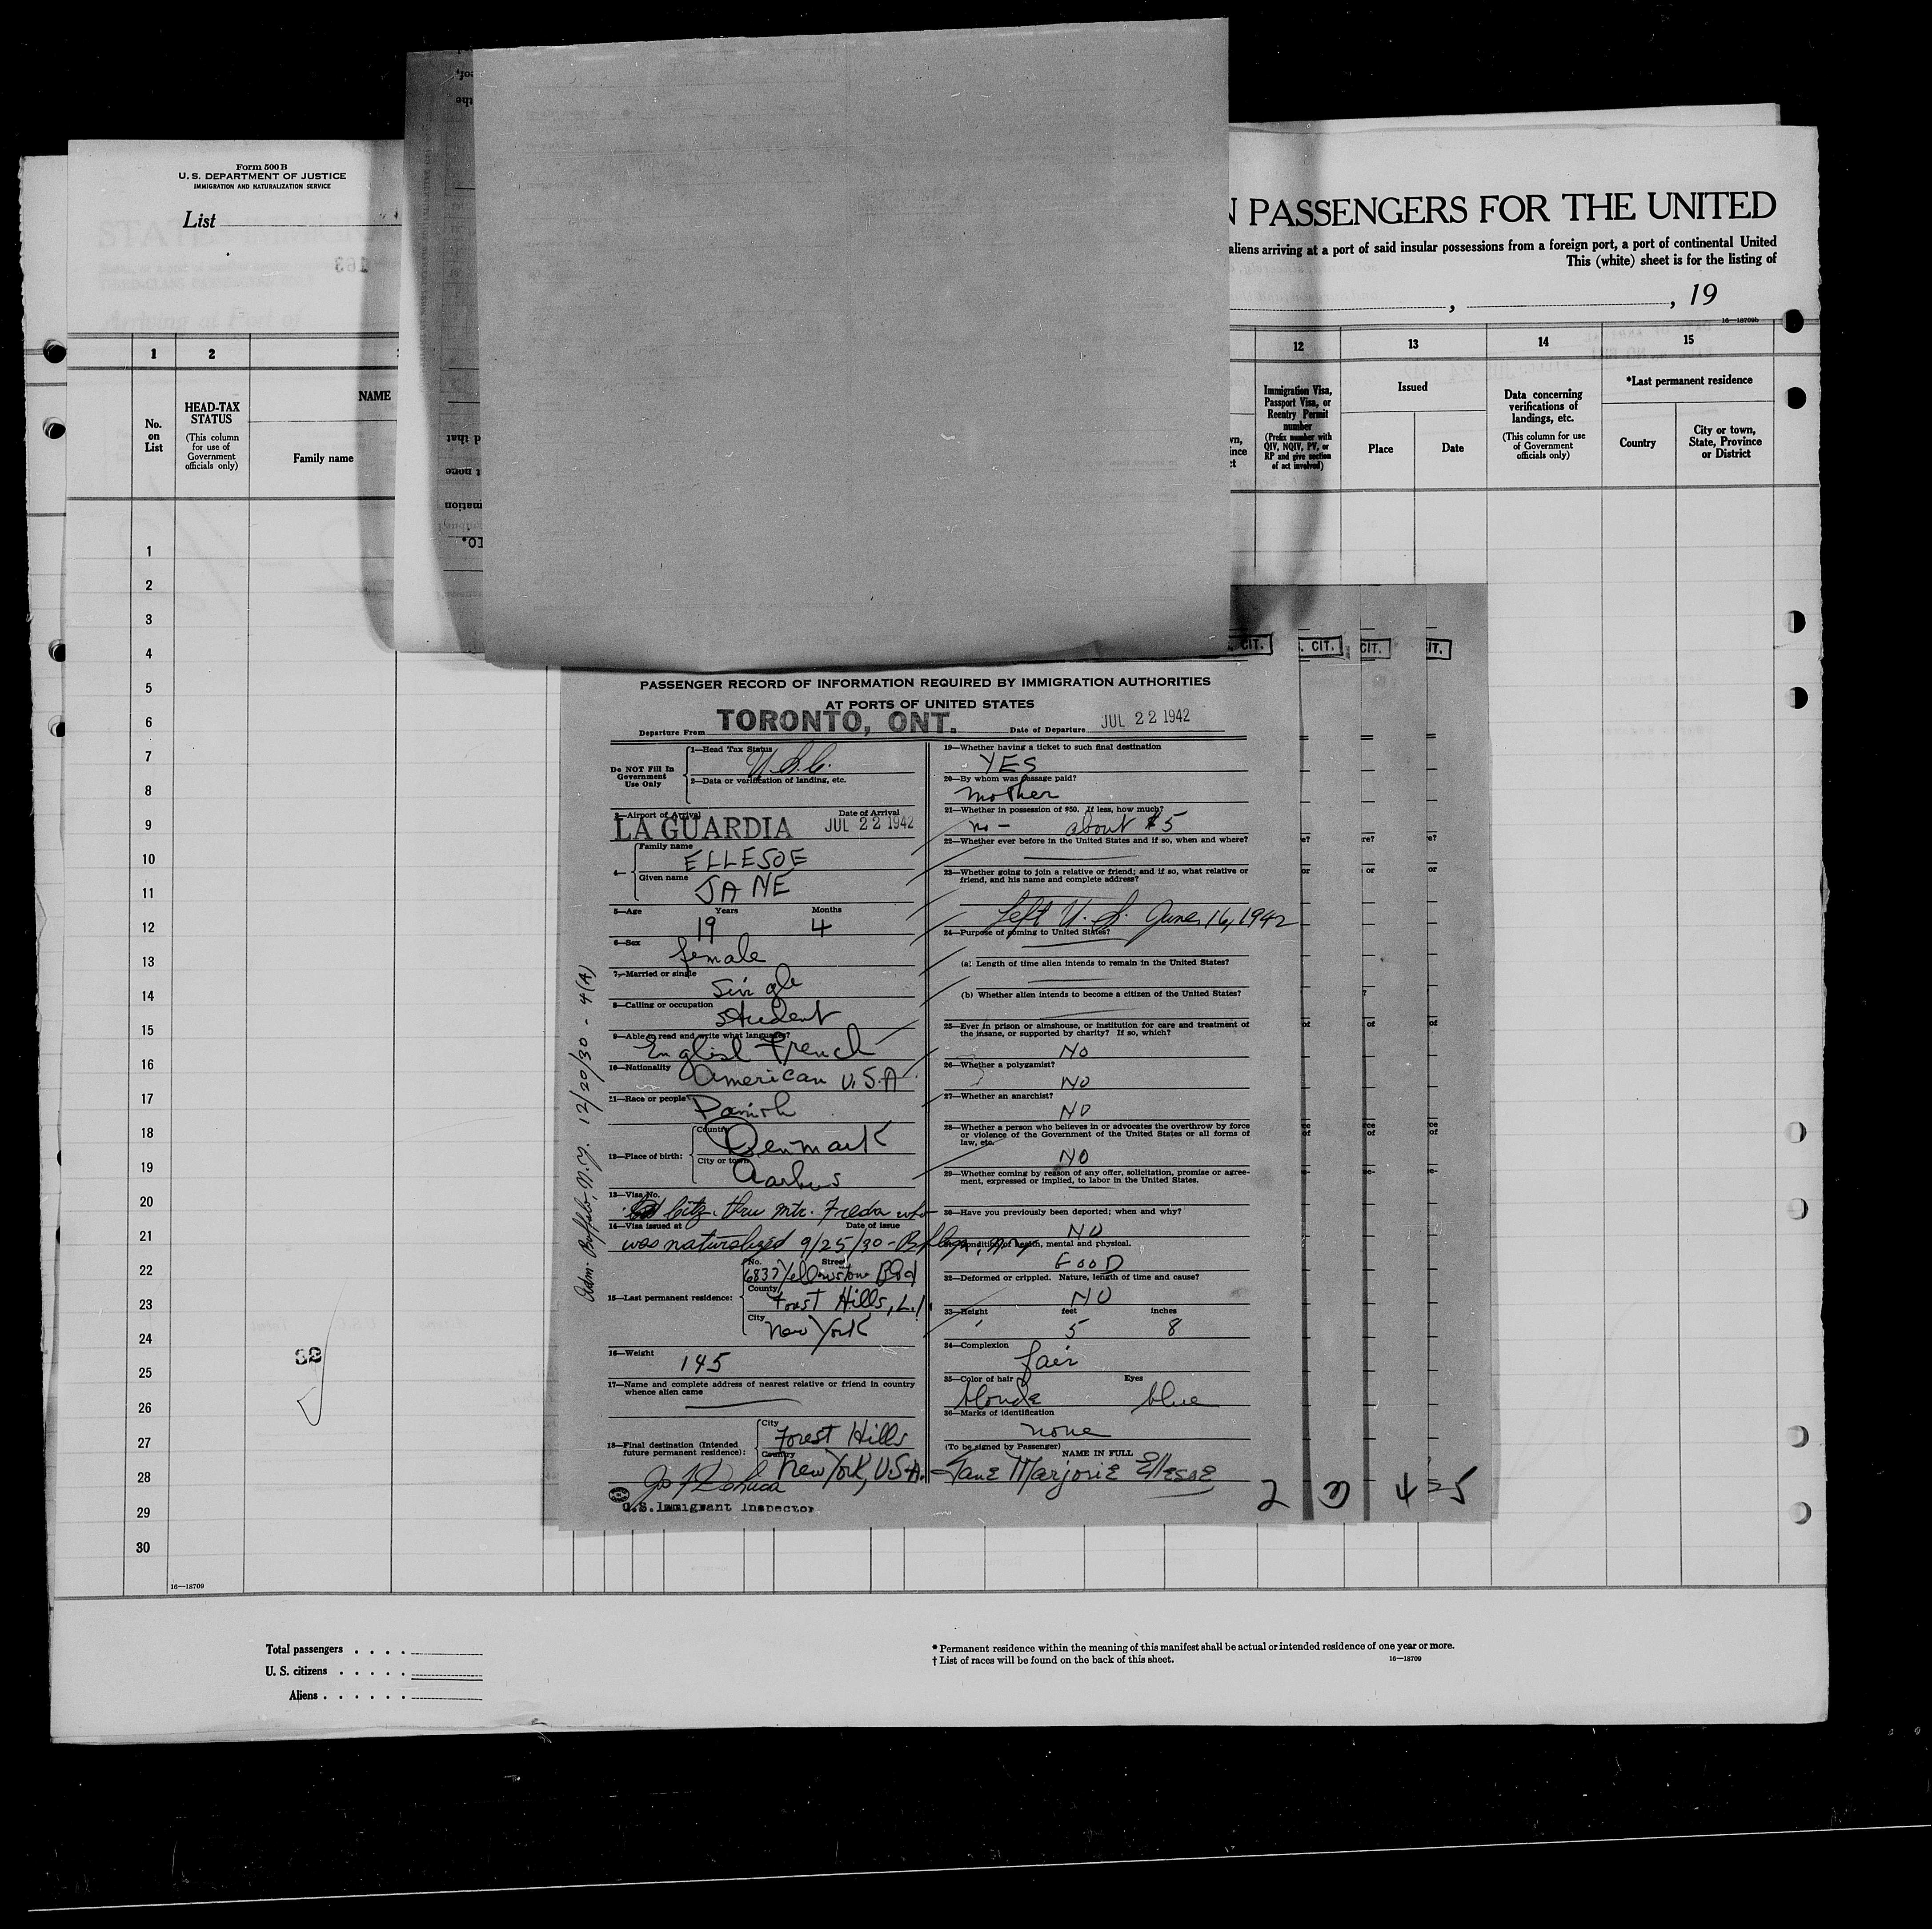 Form 500 B
U. S. DEPARTMENT OF JUSTICE
IMMIGRATION AND NATURALIZATION SERVICE
List
163
PASSENGERS FOR THE UNITED
aliens arriving at a port of said insular possessions from a foreign port, a port of continental United
This (white) sheet is for the listing of
, , 19
16—18709b
1 2 12 13 14 15
No. on List
HEAD-TAX STATUS
(This column for use of Government officials only)
NAME
Family name
Immigration Visa, Passport Visa, or Reentry Permit number
(Prefix number with QIV, NQIV, PV, or RP and give section of act involved)
Issued
Place
Date
Data concerning verifications of landings, etc.
(This column for use of Government officials only)
*Last permanent residence
Country
City or town, State, Province or District
1
2
3
4
5
6
7
8
9
10
11
12
13
14
15
16
17
18
19
20
21
22
23
24
25
26
27
28
29
30
CIT. CIT. CIT. IT.
PASSENGER RECORD OF INFORMATION REQUIRED BY IMMIGRATION AUTHORITIES
AT PORTS OF UNITED STATES
Departure From TORONTO, ONT. Date of Departure JUL 22 1942
Do NOT Fill In Government Use Only
1—Head Tax Status U.S.C.
2—Data or verification of landing, etc.
3—Airport of Arrival Date of Arrival
LA GUARDIA JUL 22 1942
4—
Family name ELLESOE
Given name JANE
5—Age Years Months
19 4
6—Sex female
7—Married or single
single
8—Calling or occupation
student
9—Able to read and write what languages?
English French
10—Nationality American U.S.A
11—Race or people Danish
12—Place of birth:
Country Denmark
City or town Aarhus
13—Visa No.
citz. thru mtr. Freda who
14—Visa issued at Date of issue
was naturalized 9/25/30 - Buffalo, N.Y.
15—Last permanent residence:
No. Street
6837 Yellowstone Blvd
County Forest Hills, L.I.
City New York
16—Weight 145
17—Name and complete address of nearest relative or friend in country whence alien came
18—Final destination (Intended future permanent residence):
City Forest Hills
Country New York, U.S.A.
U.S. Immigrant Inspector
Adm. Buffalo, N.Y. 12/20/30 - 4(A)
19—Whether having a ticket to such final destination
YES
20—By whom was passage paid?
mother
21—Whether in possession of $50. If less, how much?
no - about $5
22—Whether ever before in the United States and if so, when and where?
23—Whether going to join a relative or friend; and if so, what relative or friend, and his name and complete address?
Left U.S. June 16, 1942
24—Purpose of coming to United States?
(a) Length of time alien intends to remain in the United States?
(b) Whether alien intends to become a citizen of the United States?
25—Ever in prison or almshouse, or institution for care and treatment of the insane, or supported by charity? If so, which?
NO
26—Whether a polygamist?
NO
27—Whether an anarchist?
NO
28—Whether a person who believes in or advocates the overthrow by force or violence of the Government of the United States or all forms of law, etc.
NO
29—Whether coming by reason of any offer, solicitation, promise or agreement, expressed or implied, to labor in the United States.
30—Have you previously been deported; when and why?
NO
31—Condition of health, mental and physical.
GOOD
32—Deformed or crippled. Nature, length of time and cause?
NO
33—Height feet inches
5 8
34—Complexion
fair
35—Color of hair Eyes
blonde blue
36—Marks of identification
none
(To be signed by Passenger)
NAME IN FULL
Jane Marjorie Ellesoe
2 4 5
16—18709
Total passengers . . . .
U. S. citizens . . . . .
Aliens . . . . . .
* Permanent residence within the meaning of this manifest shall be actual or intended residence of one year or more.
† List of races will be found on the back of this sheet.
16—18709